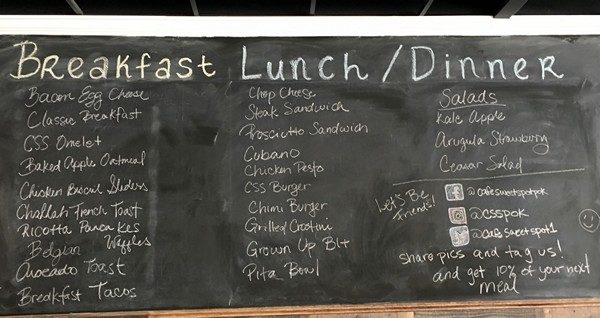 Breakfast
Bacon Egg Cheese
Classic Breakfast
CSS Omelet
Baked Apple Oatmeal
Chicken Biscuit Sliders
Challah French Toast
Ricotta Pancakes
Belgian Waffles
Avocado Toast
Breakfast Tacos
Lunch / Dinner
Chop Cheese
Steak Sandwich
Prosciutto Sandwich
Cubano
Chicken Pesto
CSS Burger
Chimi Burger
Grilled Crostini
Grown Up Blt
Pita Bowl
Salads
Kale Apple
Arugula Strawburry
Ceasar Salad
Let's Be
Friends!
@cafesweetspotpok
@csspok
@CafeSweetspot1
share pics and tag us!
and get 10% of your next
meal